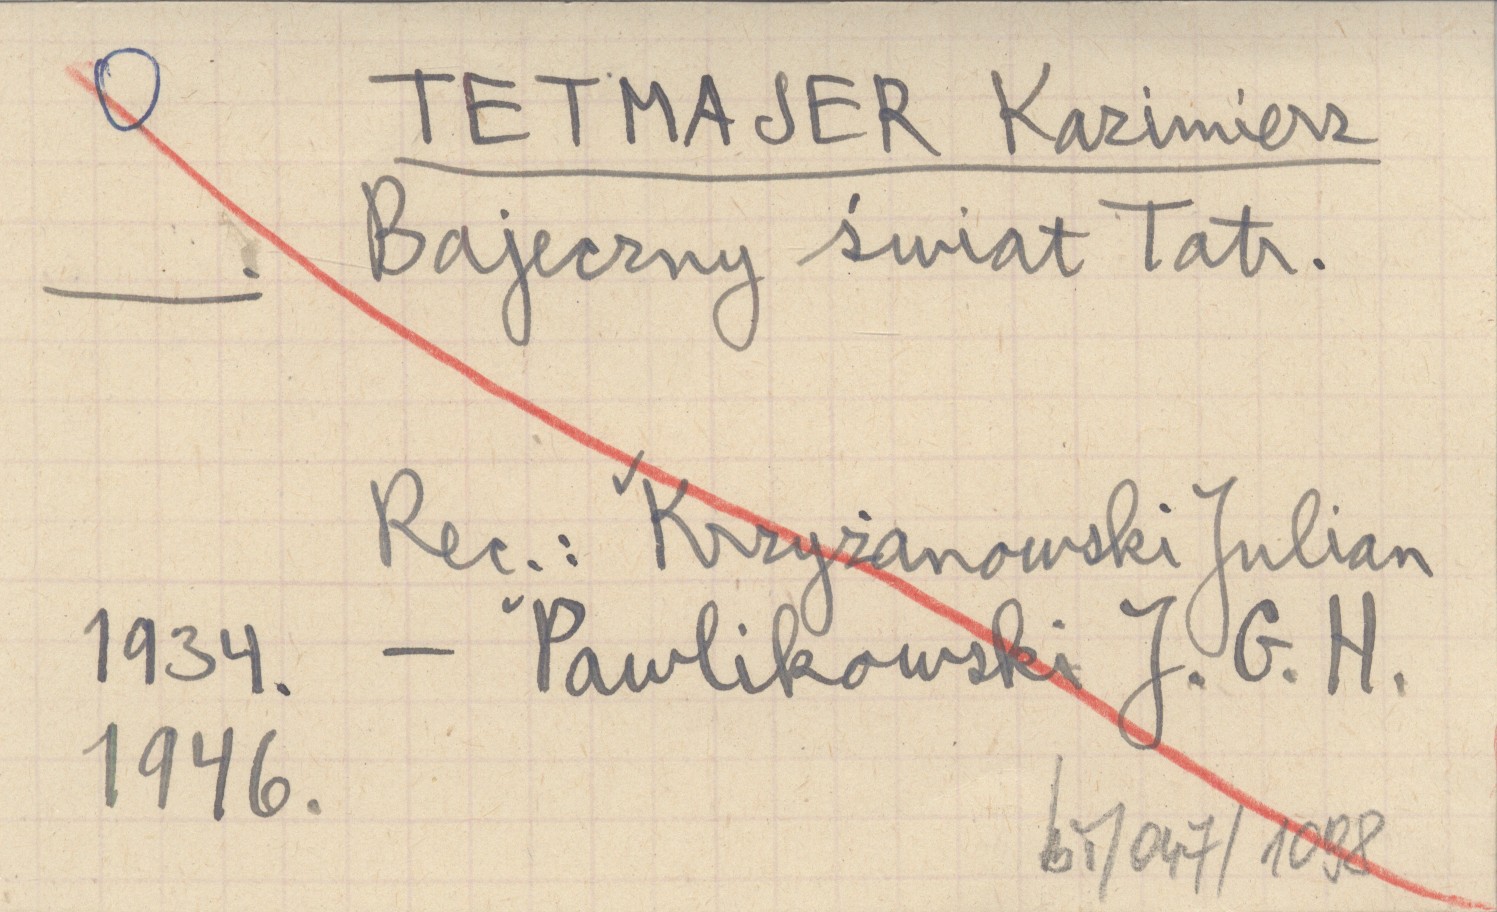 TETMAJER Kazimierz
Bajeczny świat Tatr.
Rec.: Krzyżanowski Julian
1934. — Pawlikowski J. G. H.
1946.
/047/1098